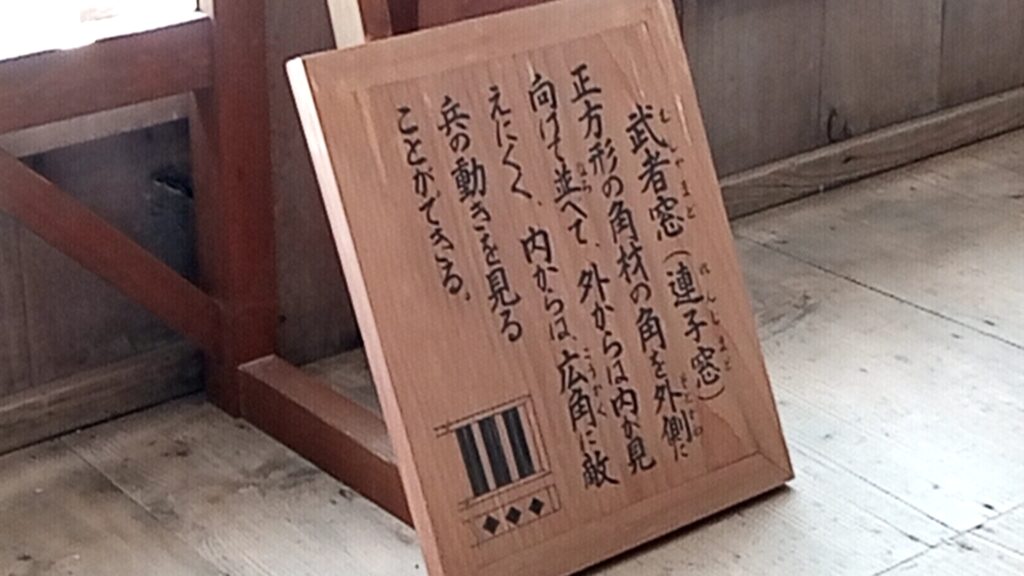 武者窓(連子窓)
正方形の角材の角を外側に
向けて並べて、外からは内が見
えにくく、内からは、広角に敵
兵の動きを見る
ことができる。